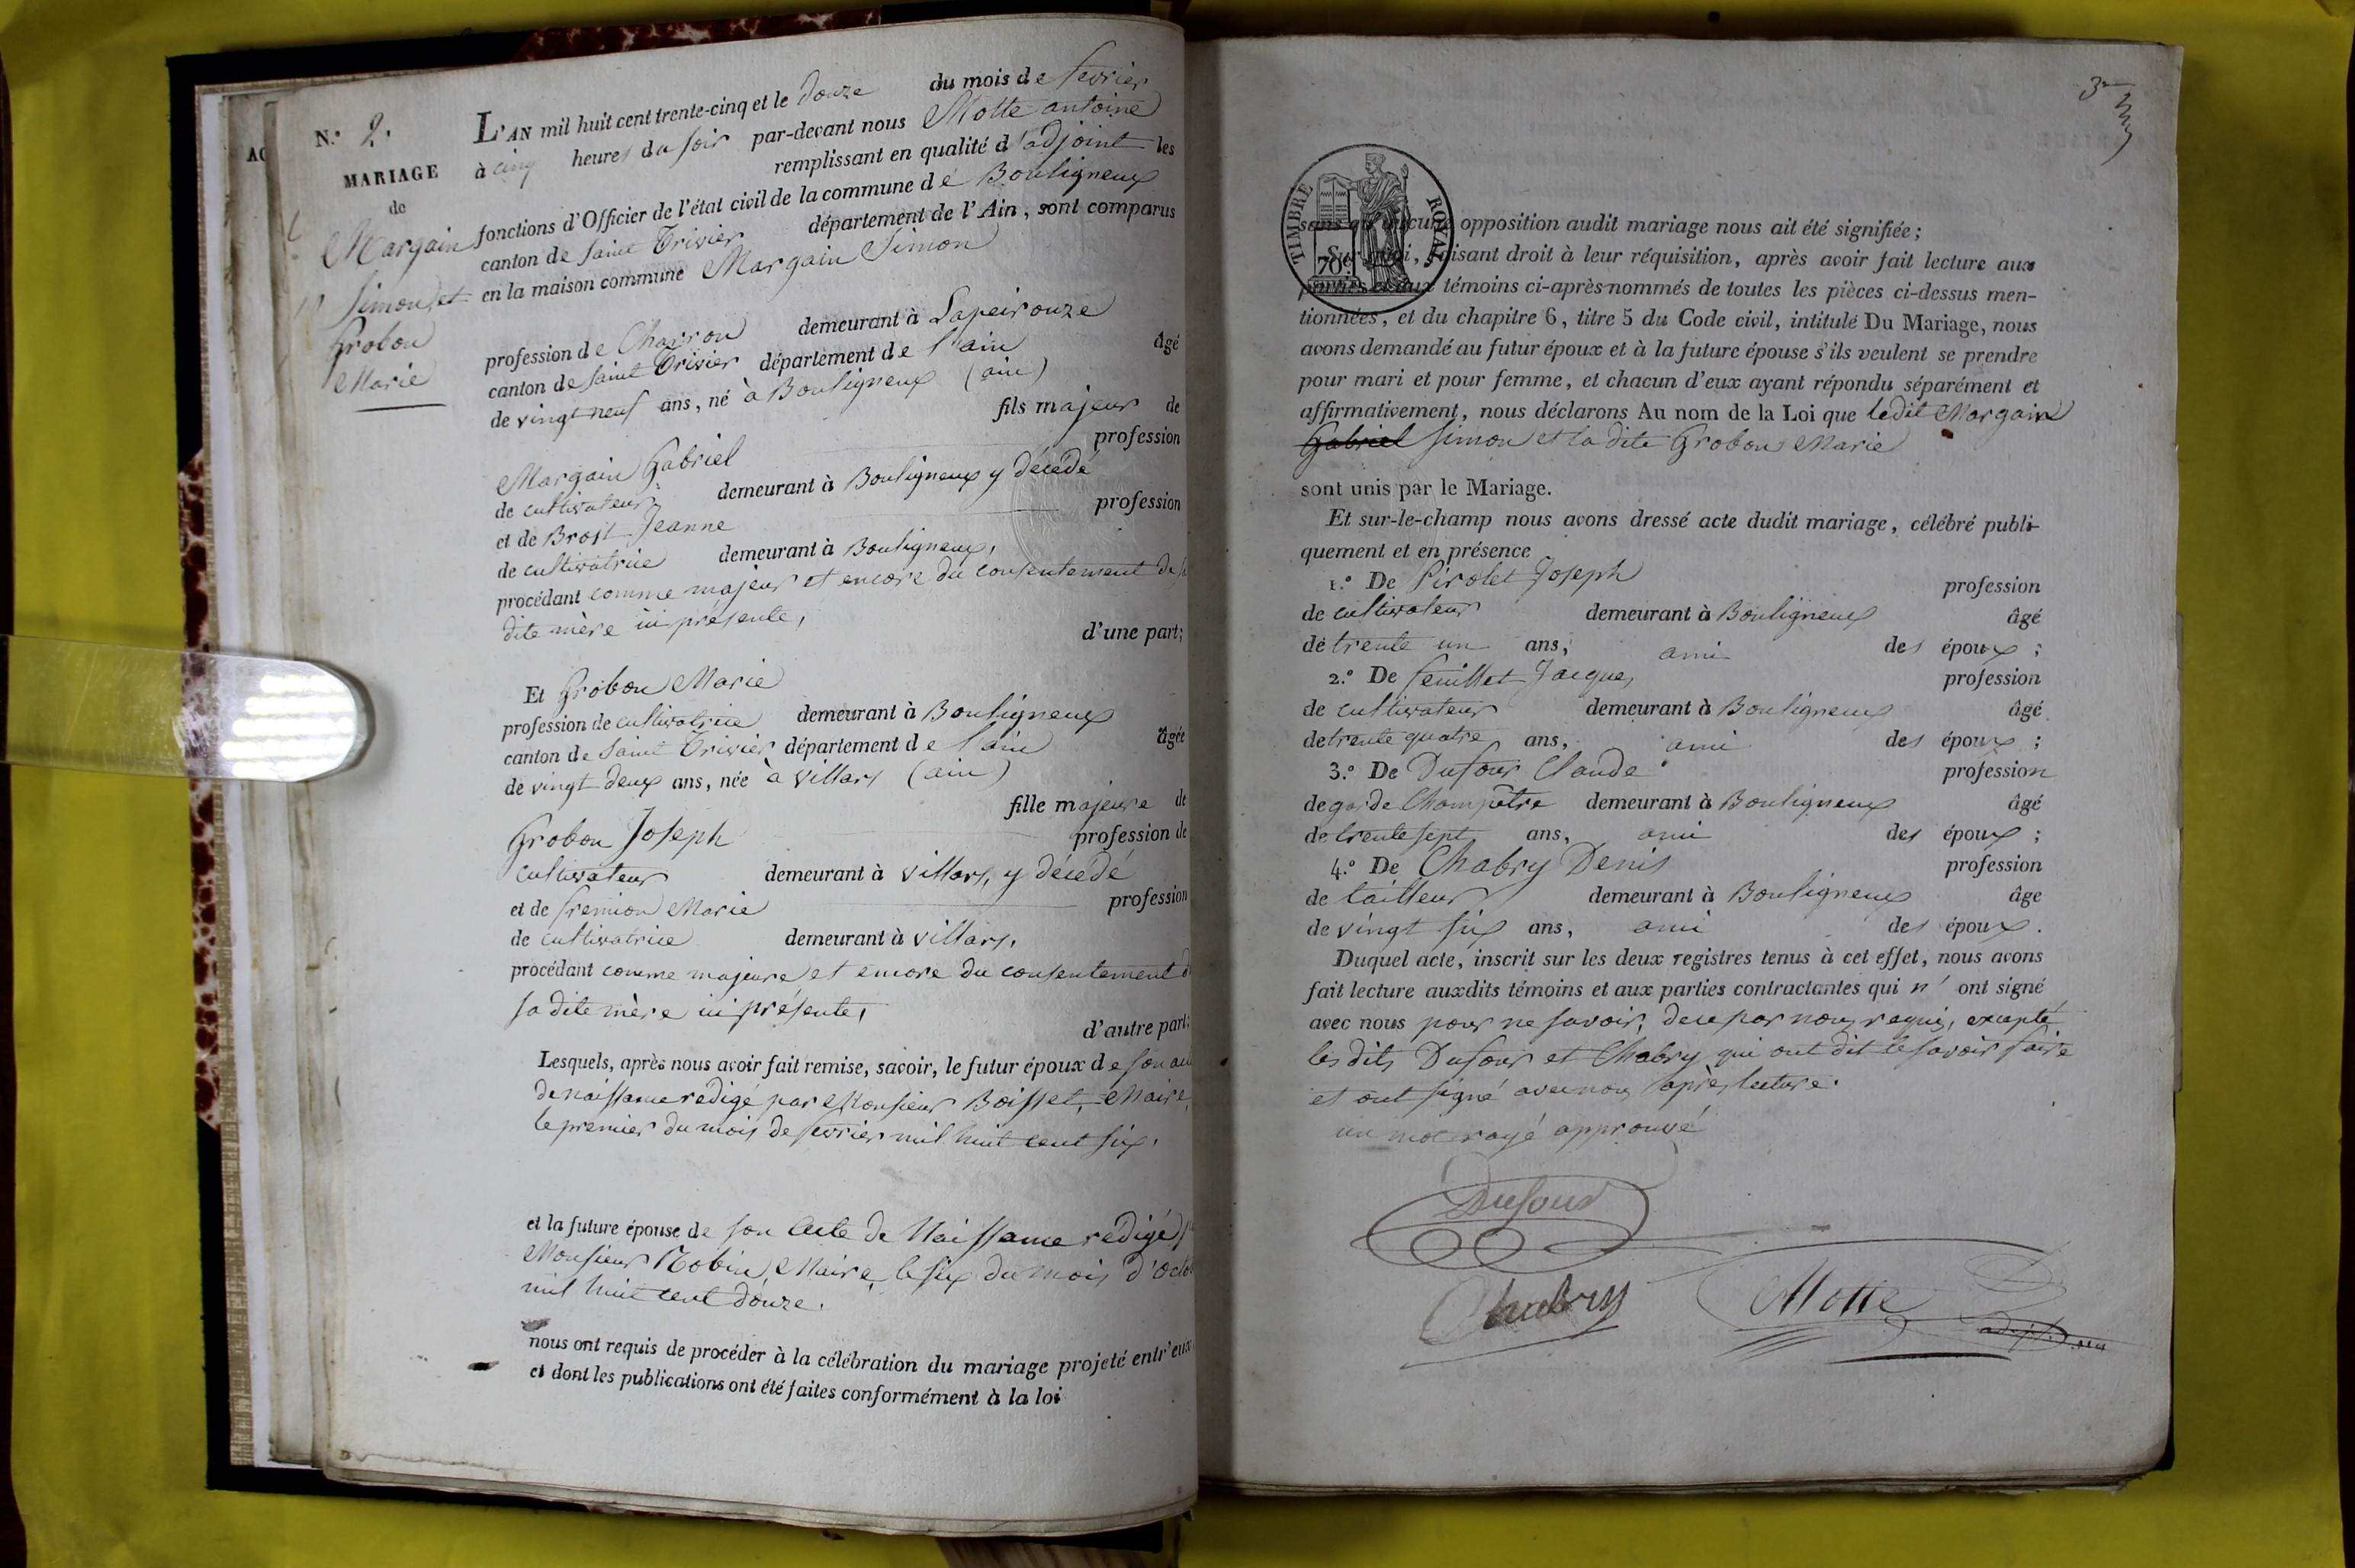 N.° 2.
MARIAGE
de
Margain
Simon et
Grobon
Marie
L'AN mil huit cent trente-cinq et le douze du mois de fevrier
à cinq heures du soir par-devant nous Motte antoine
remplissant en qualité d'adjoint les
fonctions d'Officier de l'état civil de la commune de Bouligneux
canton de saint Trivier département de l'Ain, sont comparus
en la maison commune Margain Simon
profession de Charron demeurant à Lapeirouze
canton de saint Trivier département de l'ain âgé
de vingt neuf ans, né à Bouligneux (ain)
fils majeur de
Margain Gabriel profession
de cultivateur demeurant à Bouligneux y décédé
et de Brost Jeanne profession
de cultivatrice demeurant à Bouligneux,
procédant comme majeur et encore du consentement de sa
dite mère ici présente, d'une part;
Et Grobon Marie
profession de cultivatrice demeurant à Bouligneux
canton de saint Trivier département de l'ain âgée
de vingt deux ans, née à villars (ain)
fille majeure de
Grobon Joseph profession de
cultivateur demeurant à villars, y décédé
et de fremion Marie profession
de cultivatrice demeurant à villars,
procédant comme majeure et encore du consentement d
sa dite mère ici présente, d'autre part;
Lesquels, après nous avoir fait remise, savoir, le futur époux de son
de naissance redigé par Monsieur Boisset, Maire,
le premier du mois de fevrier mil huit cent six,
et la future épouse de son Acte de Naissance redigé
Monsieur Robin, Maire, le six du mois d'Octo
mil huit cent douze.
nous ont requis de procéder à la célébration du mariage projeté entr'eux
et dont les publications ont été faites conformément à la loi
3
TIMBRE ROYAL
70c
sans qu'aucune opposition audit mariage nous ait été signifiée;
Sur quoi, faisant droit à leur réquisition, après avoir fait lecture aux
parties et aux témoins ci-après nommés de toutes les pièces ci-dessus men-
tionnées, et du chapitre 6, titre 5 du Code civil, intitulé Du Mariage, nous
avons demandé au futur époux et à la future épouse s'ils veulent se prendre
pour mari et pour femme, et chacun d'eux ayant répondu séparément et
affirmativement, nous déclarons Au nom de la Loi que ledit Margain
Gabriel simon et la dite Grobon Marie
sont unis par le Mariage.
Et sur-le-champ nous avons dressé acte dudit mariage, célébré publi-
quement et en présence
1.° De Pirolet Joseph profession
de cultivateur demeurant à Bouligneux âgé
de trente un ans; ami des époux;
2.° De feuillet Jacque, profession
de cultivateur demeurant à Bouligneux âgé
de trente quatre ans, ami des époux;
3.° De Dufour Claude profession
de garde Champêtre demeurant à Bouligneux âgé
de trente sept ans, ami des époux;
4.° De Chabry Denis profession
de tailleur demeurant à Bouligneux âge
de vingt six ans, ami des époux.
Duquel acte, inscrit sur les deux registres tenus à cet effet, nous avons
fait lecture auxdits témoins et aux parties contractantes qui n'ont signé
avec nous pour ne savoir, de ce par nous requis, excepté
les dits Dufour et Chabry qui ont dit le savoir faire
et ont signé avec nous après lecture.
un mot rayé approuvé
Dufour
Chabry
Motte